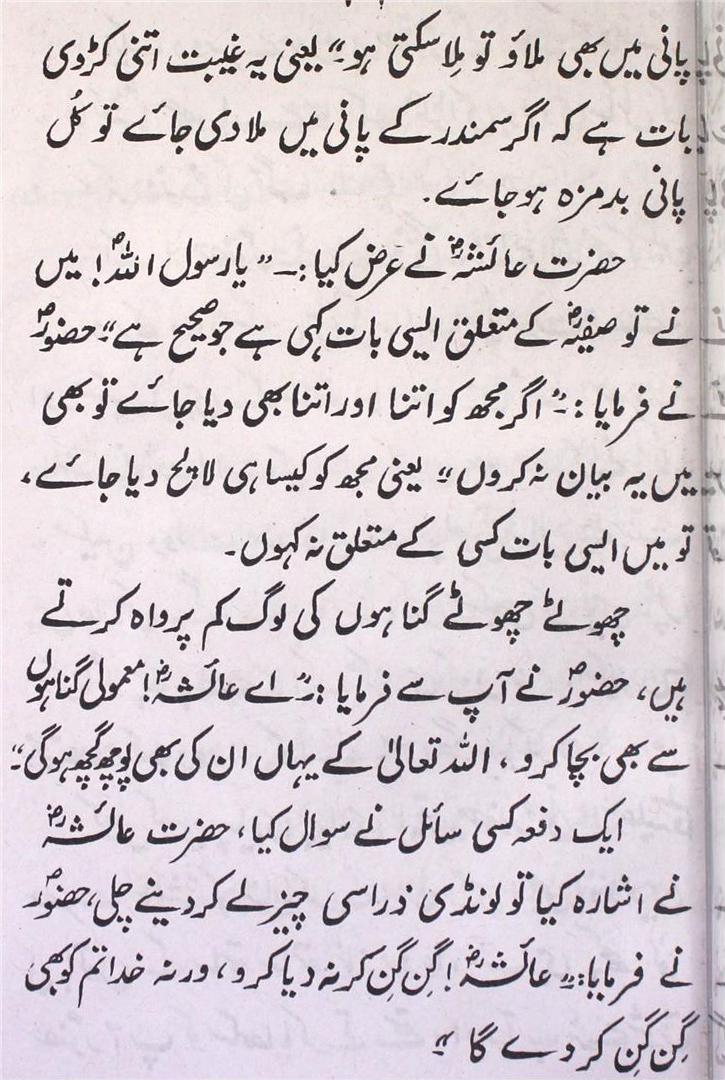 پانی میں بھی ملاؤ تو مِلا سکتی ہو۔" یعنی یہ غیبت اتنی کڑوی
بات ہے کہ اگر سمندر کے پانی میں ملا دی جائے تو کُل
پانی بدمزہ ہو جائے۔
حضرت عائشہؓ نے عرض کیا :۔ "یا رسول اللہؐ! میں
نے تو صفیہؓ کے متعلق ایسی بات کہی ہے جو صحیح ہے"۔ حضورؐ
نے فرمایا :۔ "اگر مجھ کو اتنا اور اتنا بھی دیا جائے تو بھی
میں یہ بیان نہ کروں" یعنی مجھ کو کیسا ہی لالچ دیا جائے،
تو میں ایسی بات کسی کے متعلق نہ کہوں۔
چھوٹے چھوٹے گناہوں کی لوگ کم پرواہ کرتے
ہیں، حضورؐ نے آپ سے فرمایا :۔ "اے عائشہؓ! معمولی گناہوں
سے بھی بچا کرو، اللہ تعالیٰ کے یہاں ان کی بھی پوچھ گچھ ہوگی"۔
ایک دفعہ کسی سائل نے سوال کیا، حضرت عائشہؓ
نے اشارہ کیا تو لونڈی ذرا سی چیز لے کر دینے چلی، حضورؐ
نے فرمایا :۔ "عائشہؓ! گِن گِن کر نہ دیا کرو، ورنہ خدا تم کو بھی
گِن گِن کر دے گا"۔